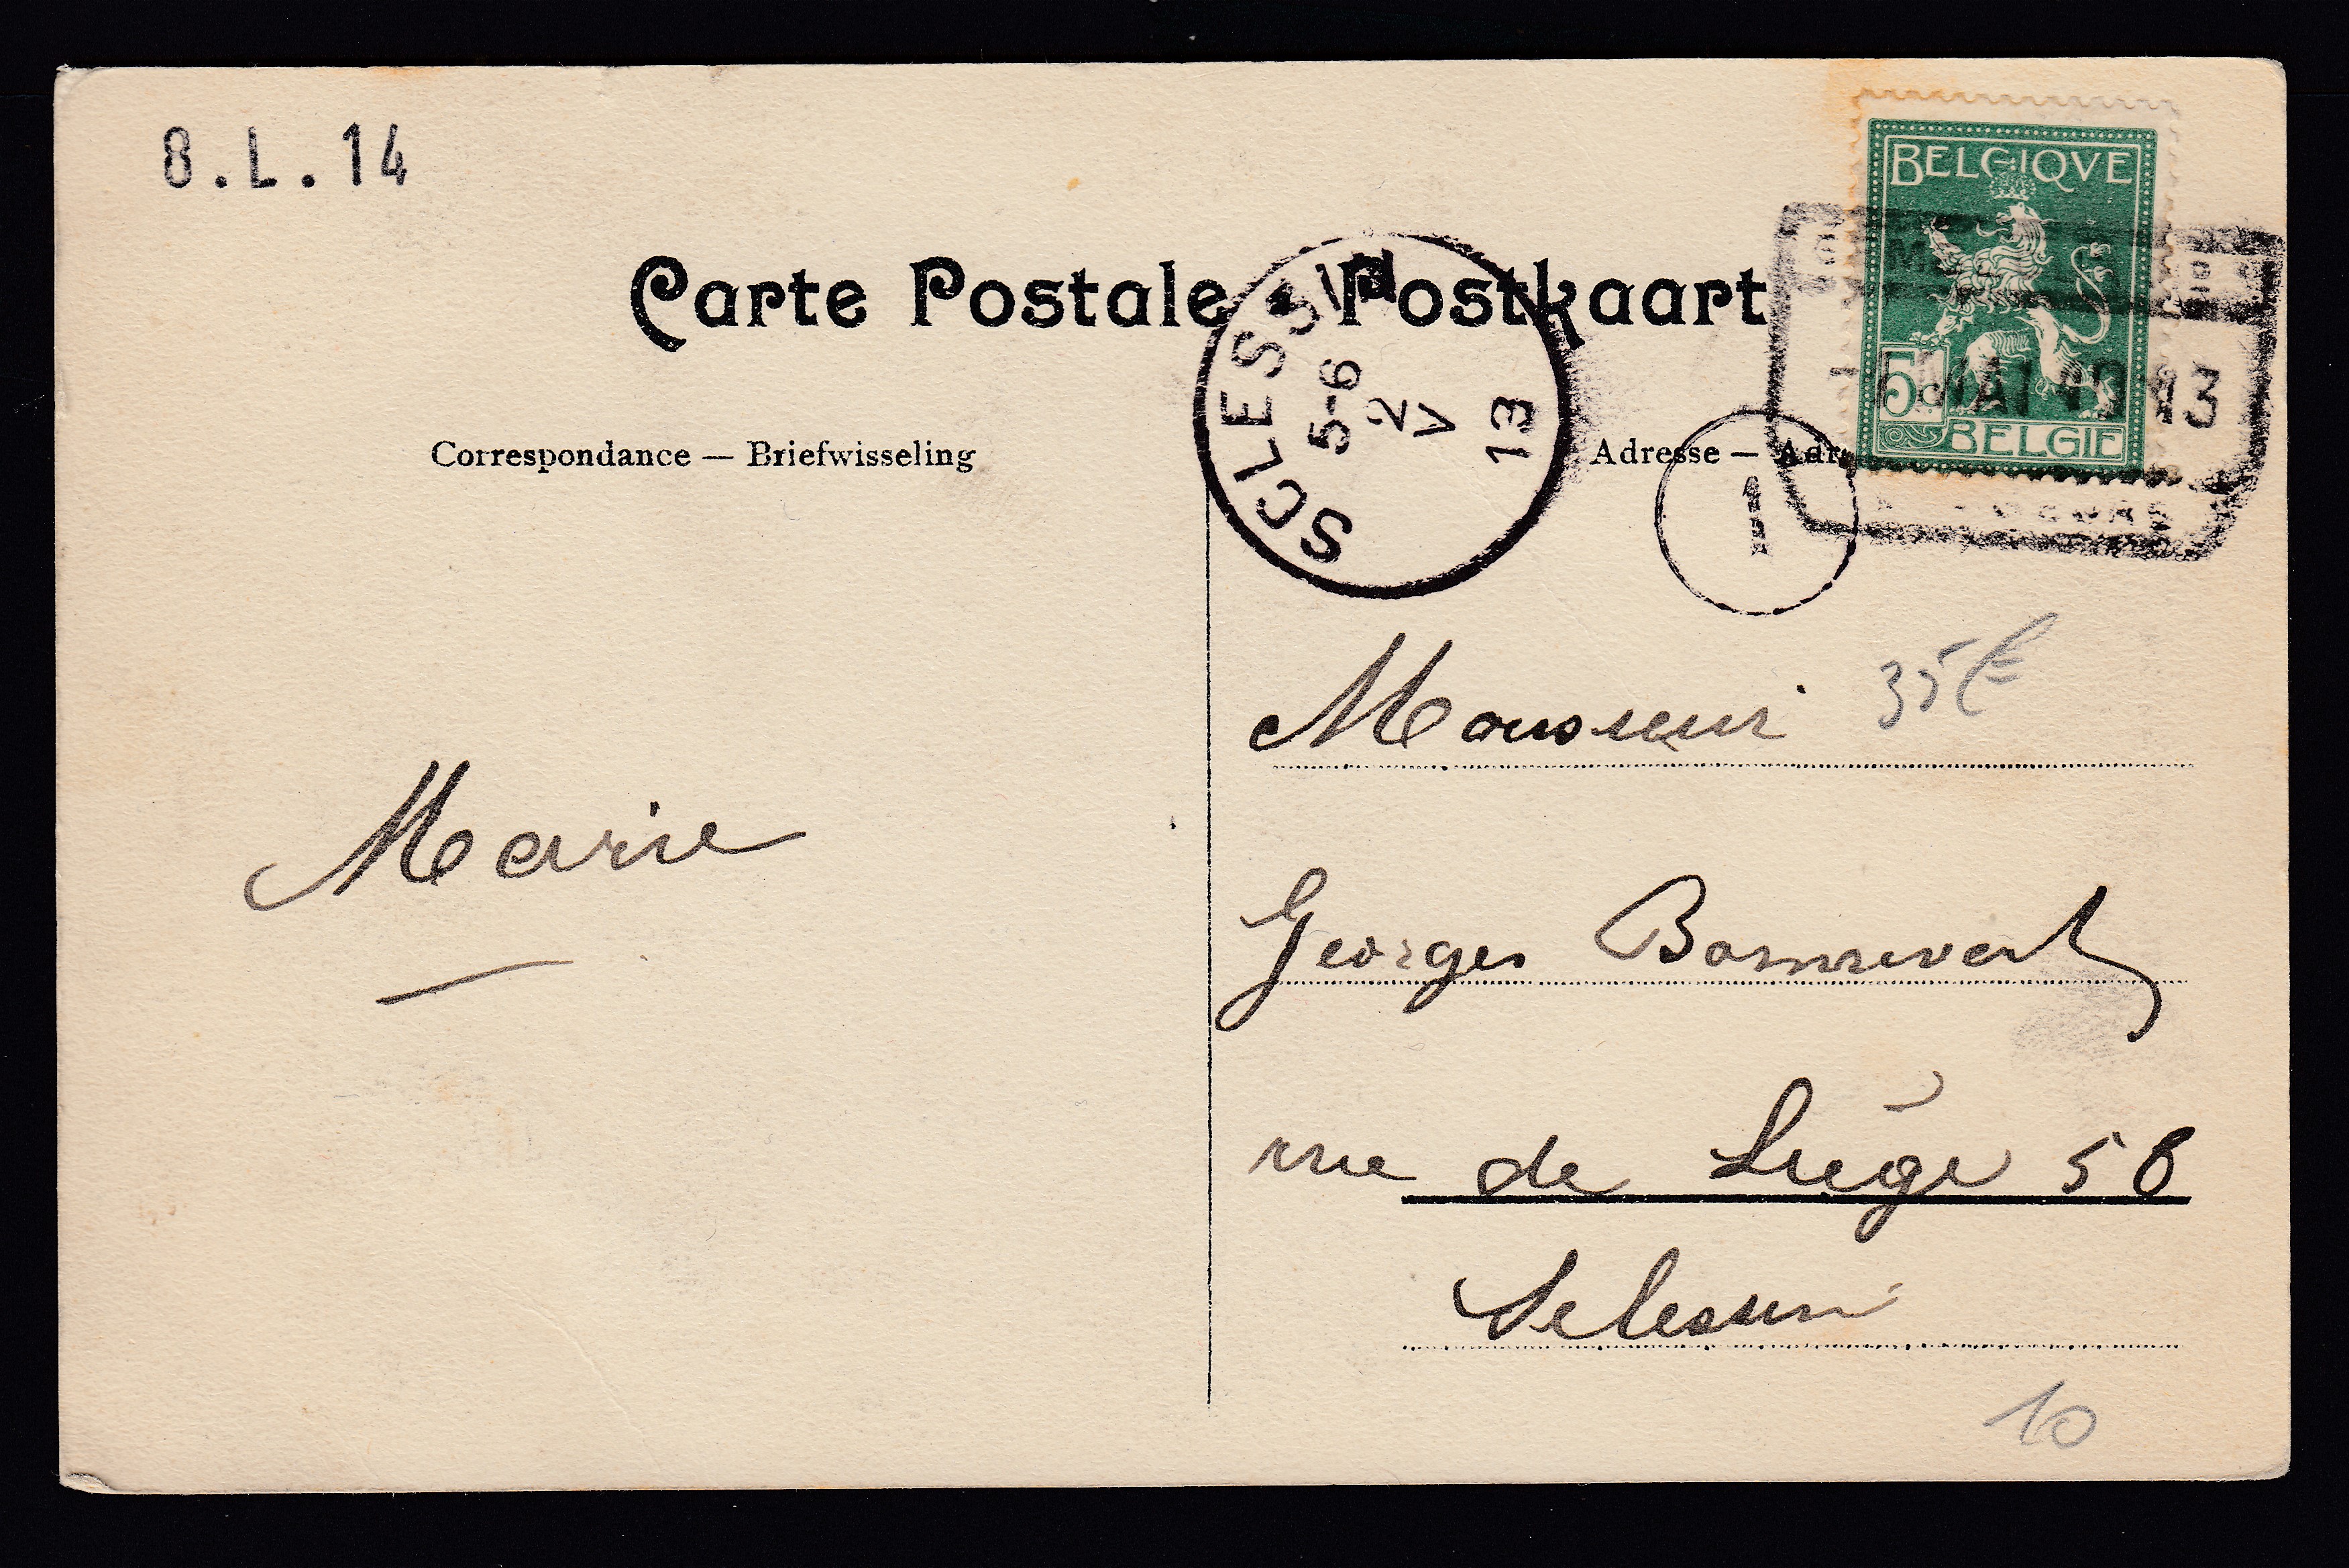 8.L.14
BELGIQVE
Carte Postale Postkaart
SCLESSIN
5-6
2
V
13
5c
MAI 1913
BELGIE
Correspondance — Briefwisseling
Adresse — Adr
1
Monsieur
35€
Marie
Georges Bonnevert
rue de Liège 58
Sclessin
10